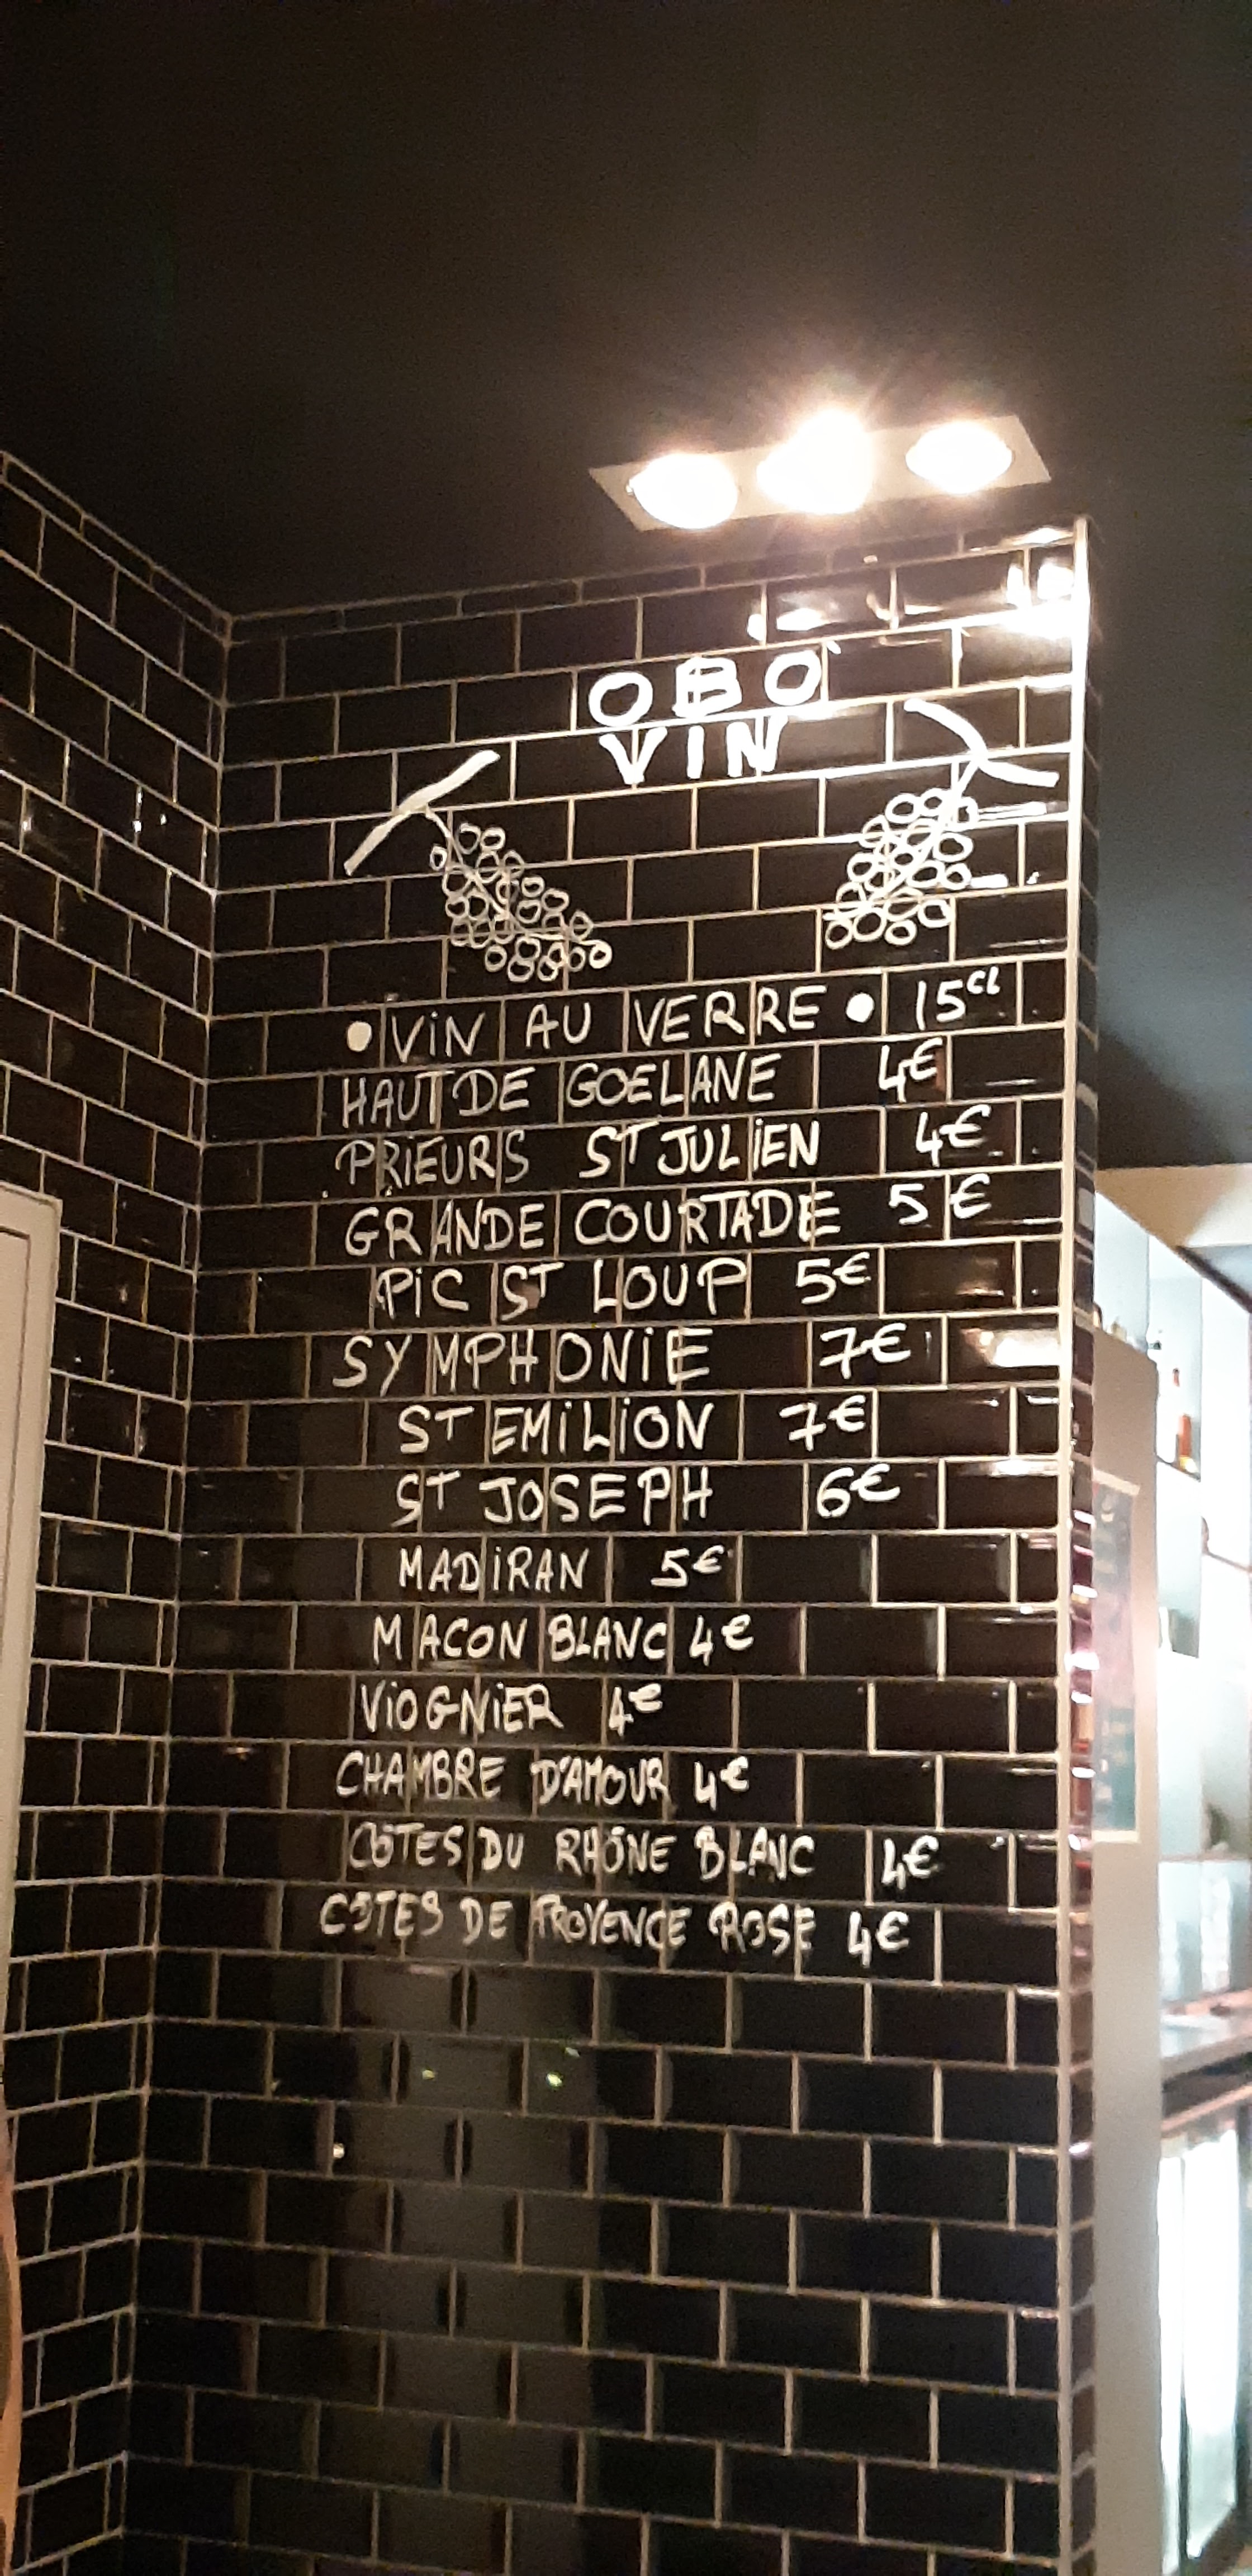 OBO
VIN
• VIN AU VERRE • 15cl
HAUT DE GOELANE 4€
PRIEURS ST JULIEN 4€
GRANDE COURTADE 5€
PIC ST LOUP 5€
SYMPHONIE 7€
ST EMILION 7€
ST JOSEPH 6€
MADIRAN 5€
MACON BLANC 4€
VIOGNIER 4€
CHAMBRE D'AMOUR 4€
CÔTES DU RHÔNE BLANC 4€
COTES DE PROVENCE ROSE 4€